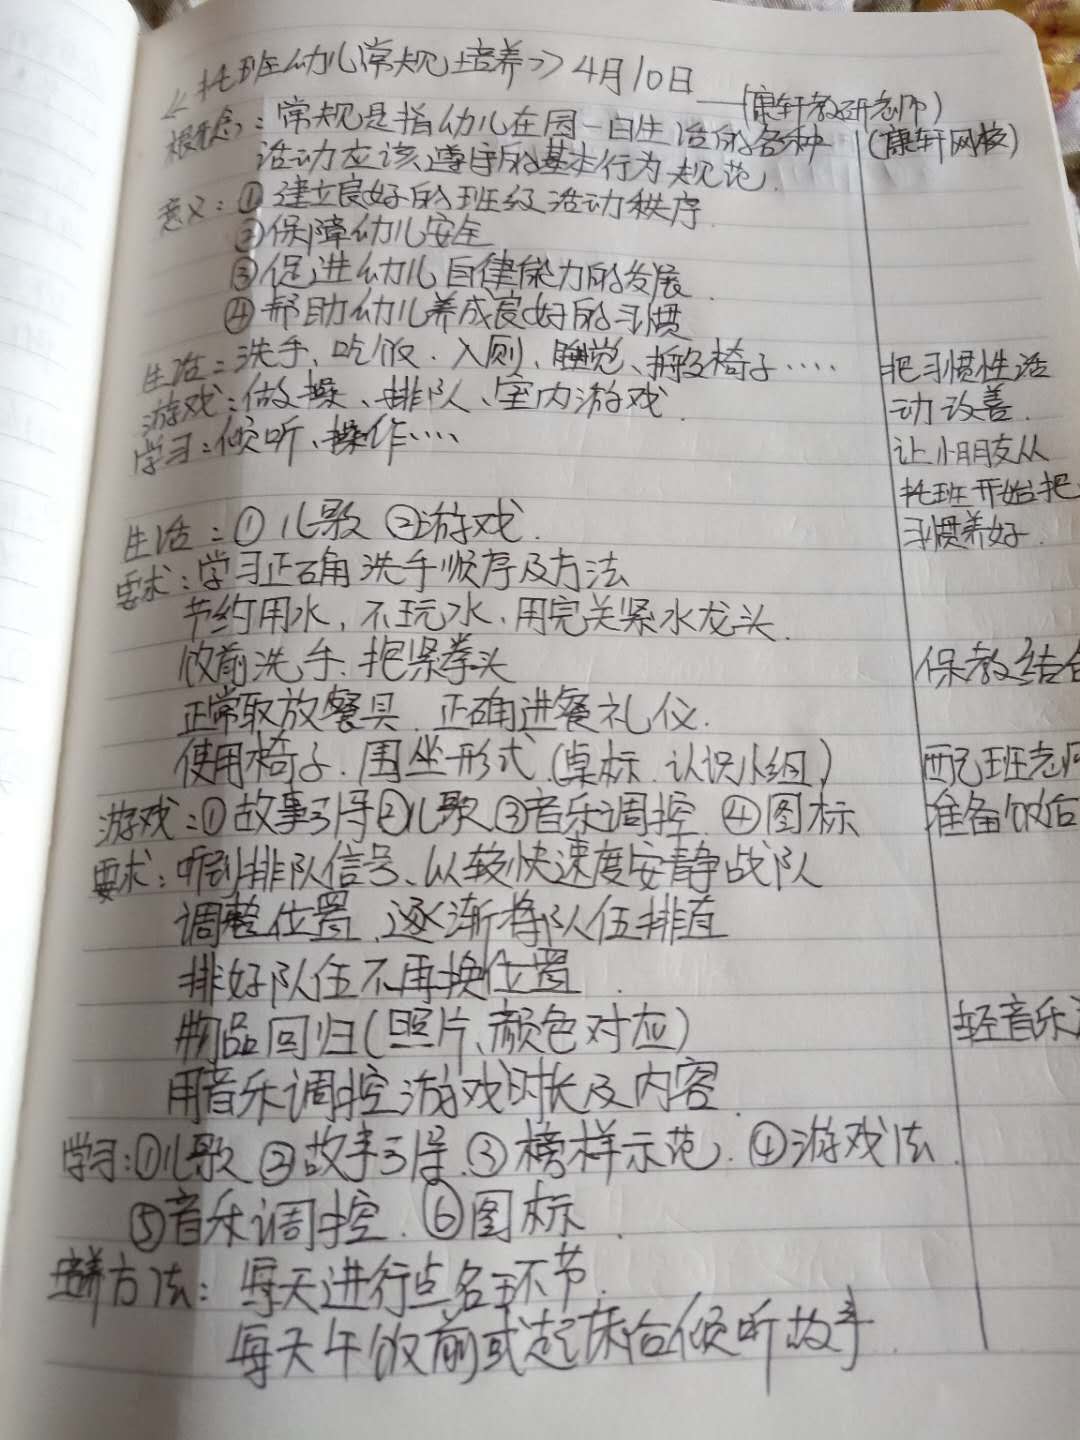 《托班幼儿常规培养》4月10日
——(康轩教研老师)
概念:常规是指幼儿在园一日生活的各种
(康轩网校)
活动应该遵守的基本行为规范.
意义:①建立良好的班级活动秩序
②保障幼儿安全
③促进幼儿自律能力的发展.
④帮助幼儿养成良好的习惯
生活:洗手、吃饭.入厕、睡觉、搬椅子····
把习惯性活
游戏:做操、排队、室内游戏
动改善.
学习:倾听、操作····
让小朋友从
托班开始把
习惯养好.
生活:①儿歌②游戏.
要求:学习正确洗手顺序及方法
节约用水,不玩水.用完关紧水龙头.
饭前洗手.把紧拳头
保教结合
正常取放餐具.正确进餐礼仪.
使用椅子.围坐形式.(桌标.认识小组)
配班老师
游戏:①故事引导②儿歌③音乐调控.④图标
准备饭后
要求:听到排队信号、以较快速度安静战队
调整位置、逐渐将队伍排直
排好队伍不再换位置.
物品回归(照片、颜色对应)
轻音乐
用音乐调控游戏时长及内容.
学习:①儿歌②故事引导.③榜样示范.④游戏法.
⑤音乐调控.⑥图标.
培养方法:每天进行点名环节.
每天午饭前或起床后倾听故事.